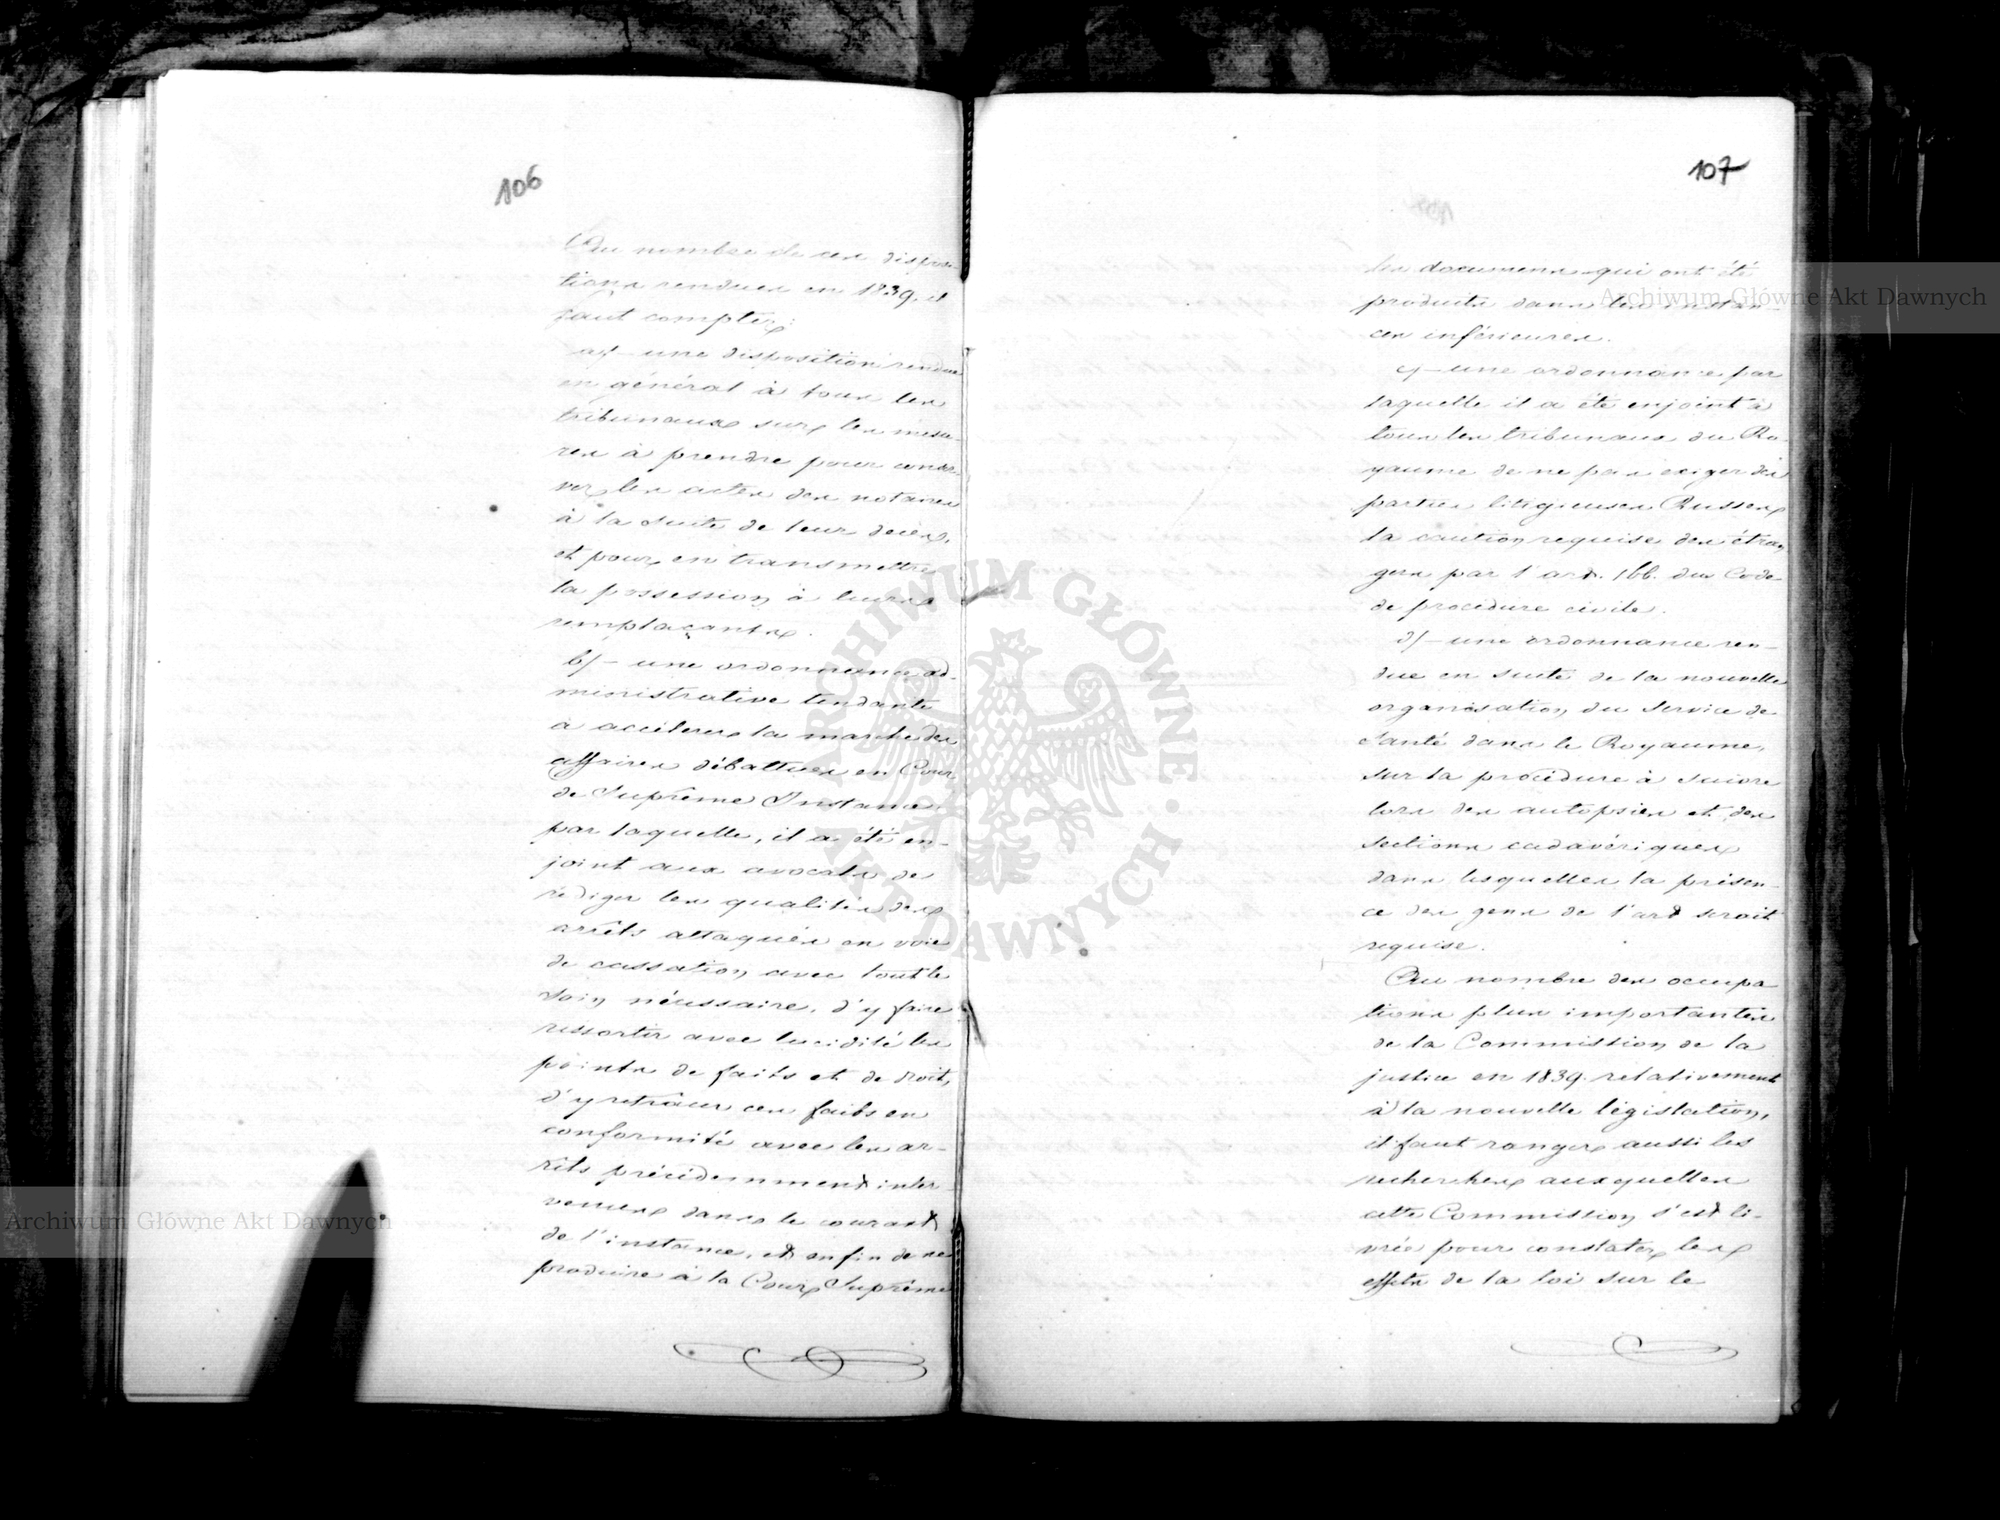 106
Au nombre de ces disposi-
tions rendues en 1839, il
faut compter:
a/ – une disposition rendue
en général à tous les
tribunaux sur les mesu-
res à prendre pour conser-
ver les actes des notaires
à la suite de leur décès,
et pour en transmettre
la possession à leurs
remplaçants.
b/ – une ordonnance ad-
ministrative tendante
à accélérer la marche des
affaires débattues en Cour
de Suprême Instance
par laquelle, il a été en-
joint aux avocats de
rédiger les qualités des
arrêts attaqués en voie
de cassation avec tout le
soin nécessaire, d'y faire
ressortir avec lucidité les
points de faits et de droit,
d'y retracer ces faits en
conformité avec les ar-
rêts précédemment inter-
venus dans le courant
de l'instance, et enfin de ne
produire à la Cour Suprême
107
les documens qui ont été
produits dans les instan-
ces inférieures.
c/ – une ordonnance par
laquelle il a été enjoint à
tous les tribunaux du Ro-
yaume de ne pas exiger des
parties litigieuses Russes
la caution requise des étran
gers par l'art. 166. du Code
de procédure civile.
d/ – une ordonnance ren-
due en suite de la nouvelle
organisation du Service de
Santé dans le Royaume,
sur la procédure à suivre
lors des autopsies et des
sections cadavériques
dans lesquelles la présen-
ce des gens de l'art seroit
requise.
Au nombre des occupa
tions plus importantes
de la Commission de la
justice en 1839. relativement
à la nouvelle législation,
il faut ranger aussi les
recherches auxquelles
cette Commission s'est li-
vrée pour constater les
effets de la loi sur le
Archiwum Główne Akt Dawnych
Archiwum Główne Akt Dawnych
ARCHIWUM GŁÓWNE · AKT DAWNYCH ·